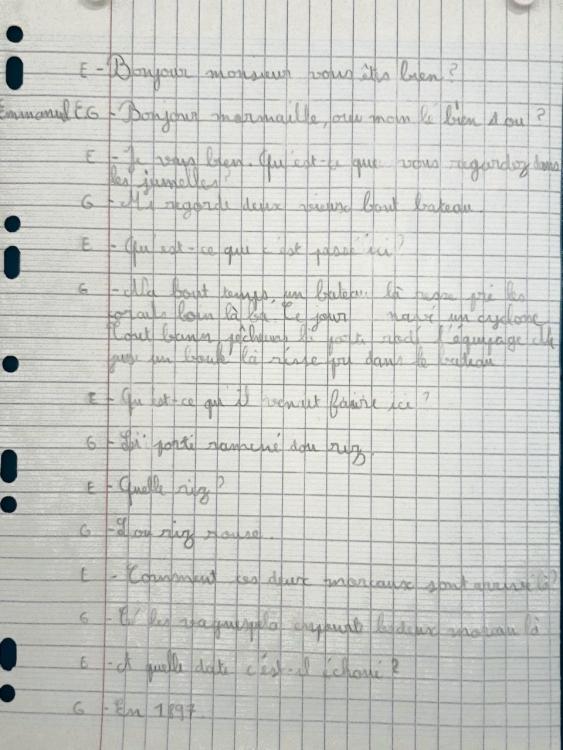 E - Bonjour monsieur vous êtes bien ?
Emmanuel E.G - Bonjour marmaille, oui moin lé bien é ou ?
E - Je vais bien. Qu'est-ce que vous regardez dans
les jumelles ?
G - Mi regarde deux vieux bout bateau.
E - Qu'est-ce que c'est passé ici ?
G - Na bout temps, un bateau là
corails loin là ba. Ce jour navé un cyclone
Tout bann pêcheurs l'équipage
un bouk là dans le bateau
E - Qu'est-ce qu'il venait faire ici ?
G - Li porté ramené dou riz.
E - Quelle riz ?
G - Dou riz rouse.
E - Comment ces deux morceaux sont arrivé là ?
G - Cé les le deux morceau là
E - A quelle date c'est-il échoué ?
G - En 1897.